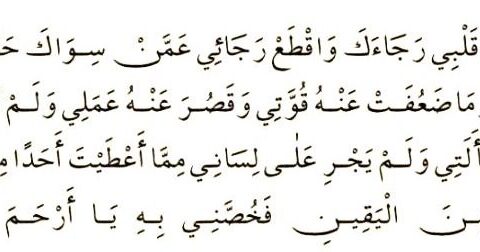 قَلْبِي رَجَاءَكَ وَاقْطَعْ رَجَائِي عَمَّنْ سِوَاكَ
مَا ضَعُفَتْ عَنْهُ قُوَّتِي وَقَصُرَ عَنْهُ عَمَلِي وَلَمْ
وَلَمْ يَجْرِ عَلٰى لِسَانِي مِمَّا أَعْطَيْتَ أَحَدًا
الْيَقِينِ فَخُصَّنِي بِهِ يَا أَرْحَمَ